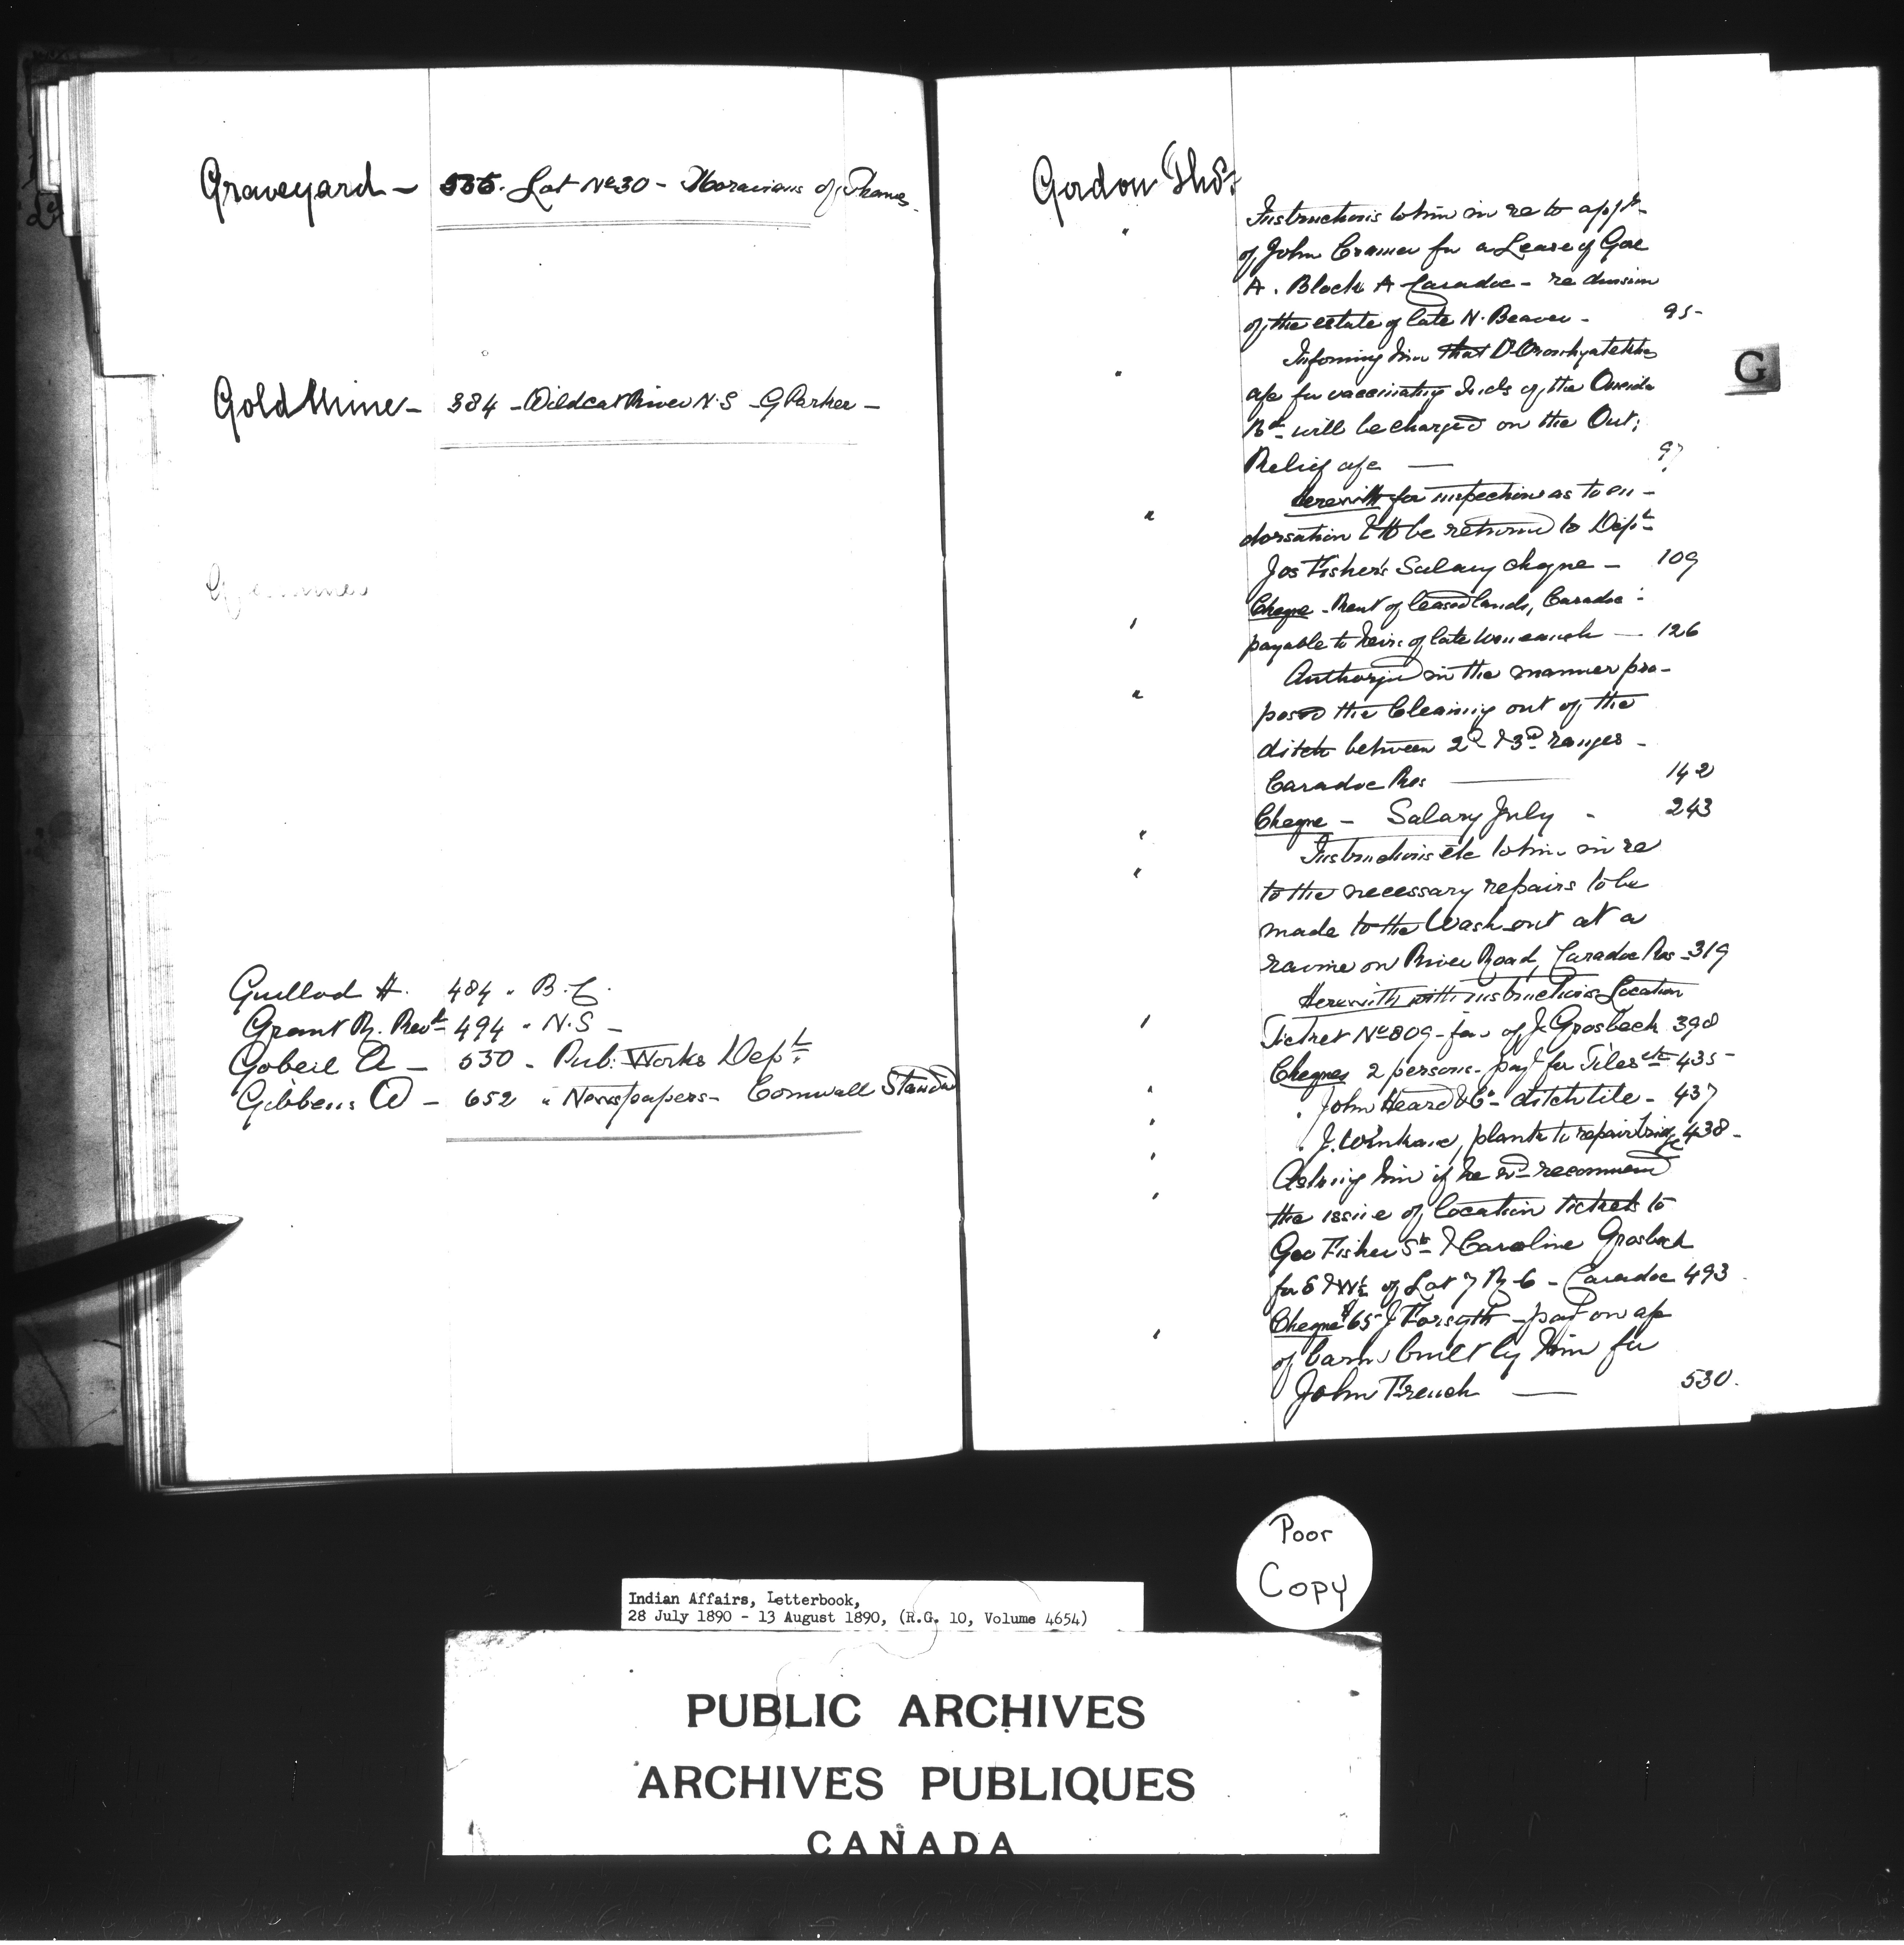 Graveyard - 535. Lot No 30 - Moravians of Thames.
Gold Mine - 384 - Wildcat River N.S - G Parker -
Guillod H. 484 " B.C.
Grant R. Revd 494 " N.S -
Gobeil A - 530 - Pub: Works Dept
Gibbens W - 652 " Newspapers - Cornwall Standard
Gordon Thos
Instructions to him in re to appln
" of John Cramer for a Lease of Gore
A. Block A Caradoc - re division
of the estate of late N. Beaver - 95 -
Informing him that Dr
" a/c for vaccinating Inds of the Oneida
Bd will be charged on the Out;
Relief a/c — 97
Herewith for inspection as to en -
" dorsation & to be returned to Dept
Jos Fisher's Salary cheque - 109
Cheque - Rent of leased lands, Caradoc -
" payable to heirs of late — 126
Authorizing in the manner pro -
" posed the Cleaning out of the
ditch between 2d & 3rd ranges -
Caradoc Res — 142
Cheque - Salary July - 243
" Instructions etc to him in re
" to the necessary repairs to be
made to the Wash out at a
ravine on River Road, Caradoc Res - 319
Herewith with instructions Location
" Ticket No 809 - fav of J. Grosbeck 398
Cheques 2 persons - payt for Tiles etc 435 -
" " John Heard & Co - ditch tile - 437
" " J. plank to repair bridge 438 -
" Asking him if he wd recommend
" the issue of location tickets to
Geo Fisher Sr & Caroline Grosbeck
for E & W½ of Lot 7 R. 6 - Caradoc 493
Cheque $65 J Forsyth - payt on a/c
" of barn built by him for
John French — 530.
G
Poor
Copy
Indian Affairs, Letterbook,
28 July 1890 - 13 August 1890, (R.G. 10, Volume 4654)
PUBLIC ARCHIVES
ARCHIVES PUBLIQUES
CANADA